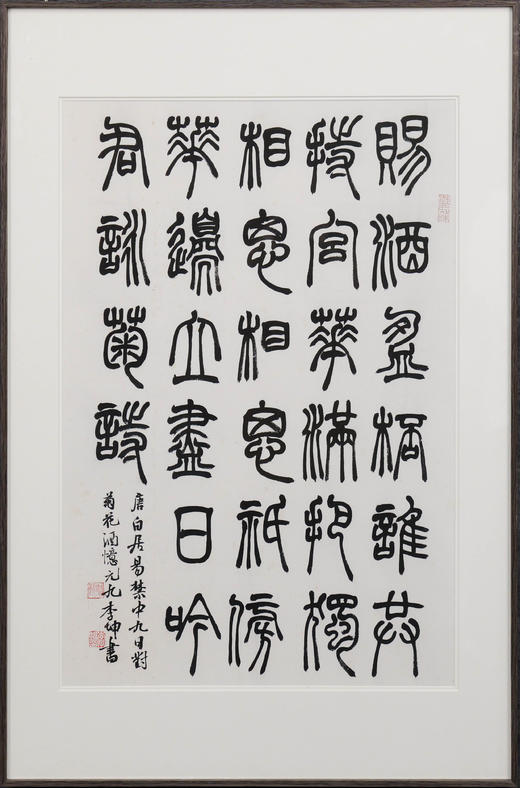 賜酒盈桮誰共
持宮華滿把獨
相思相思祇傍
華邊立盡日吟
君詠菊詩
唐白居易禁中九日對
菊花酒憶元九書